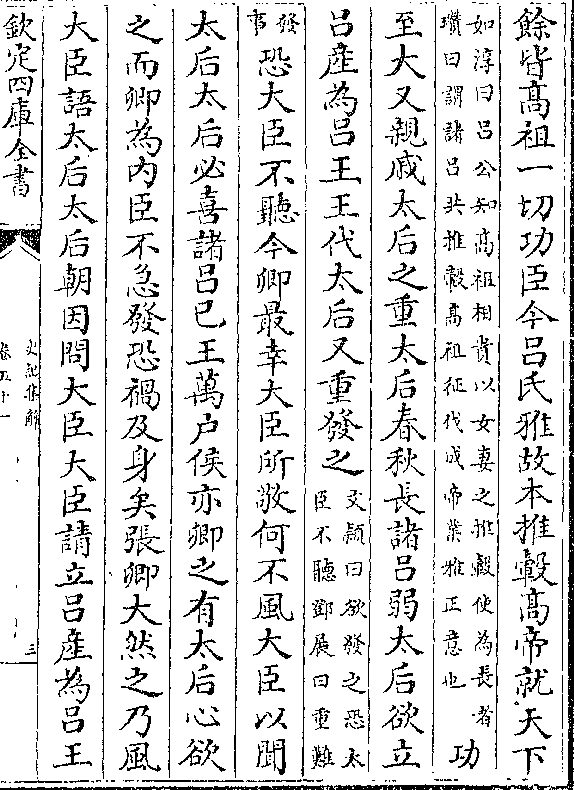 餘皆高祖一切功臣今吕氏雅故本推轂高帝就天下
如淳曰吕公知髙祖相貴以女妻之推轂使為長者
瓚曰謂諸吕共推轂髙祖征伐成帝業雅正意也
功
至大又親戚太后之重太后春秋長諸吕弱太后欲立
吕產為吕王王代太后又重發之
文頴曰欲發之恐大
臣不聽鄧展曰重難
發
事
恐大臣不聽今卿最幸大臣所敬何不風大臣以聞
太后太后必喜諸吕已王萬户侯亦卿之有太后心欲
之而卿為内臣不急發恐禍及身矣張卿大然之乃風
大臣語太后太后朝因問大臣大臣請立吕產為吕王
欽定四庫全書
史記集解
卷五十一
三